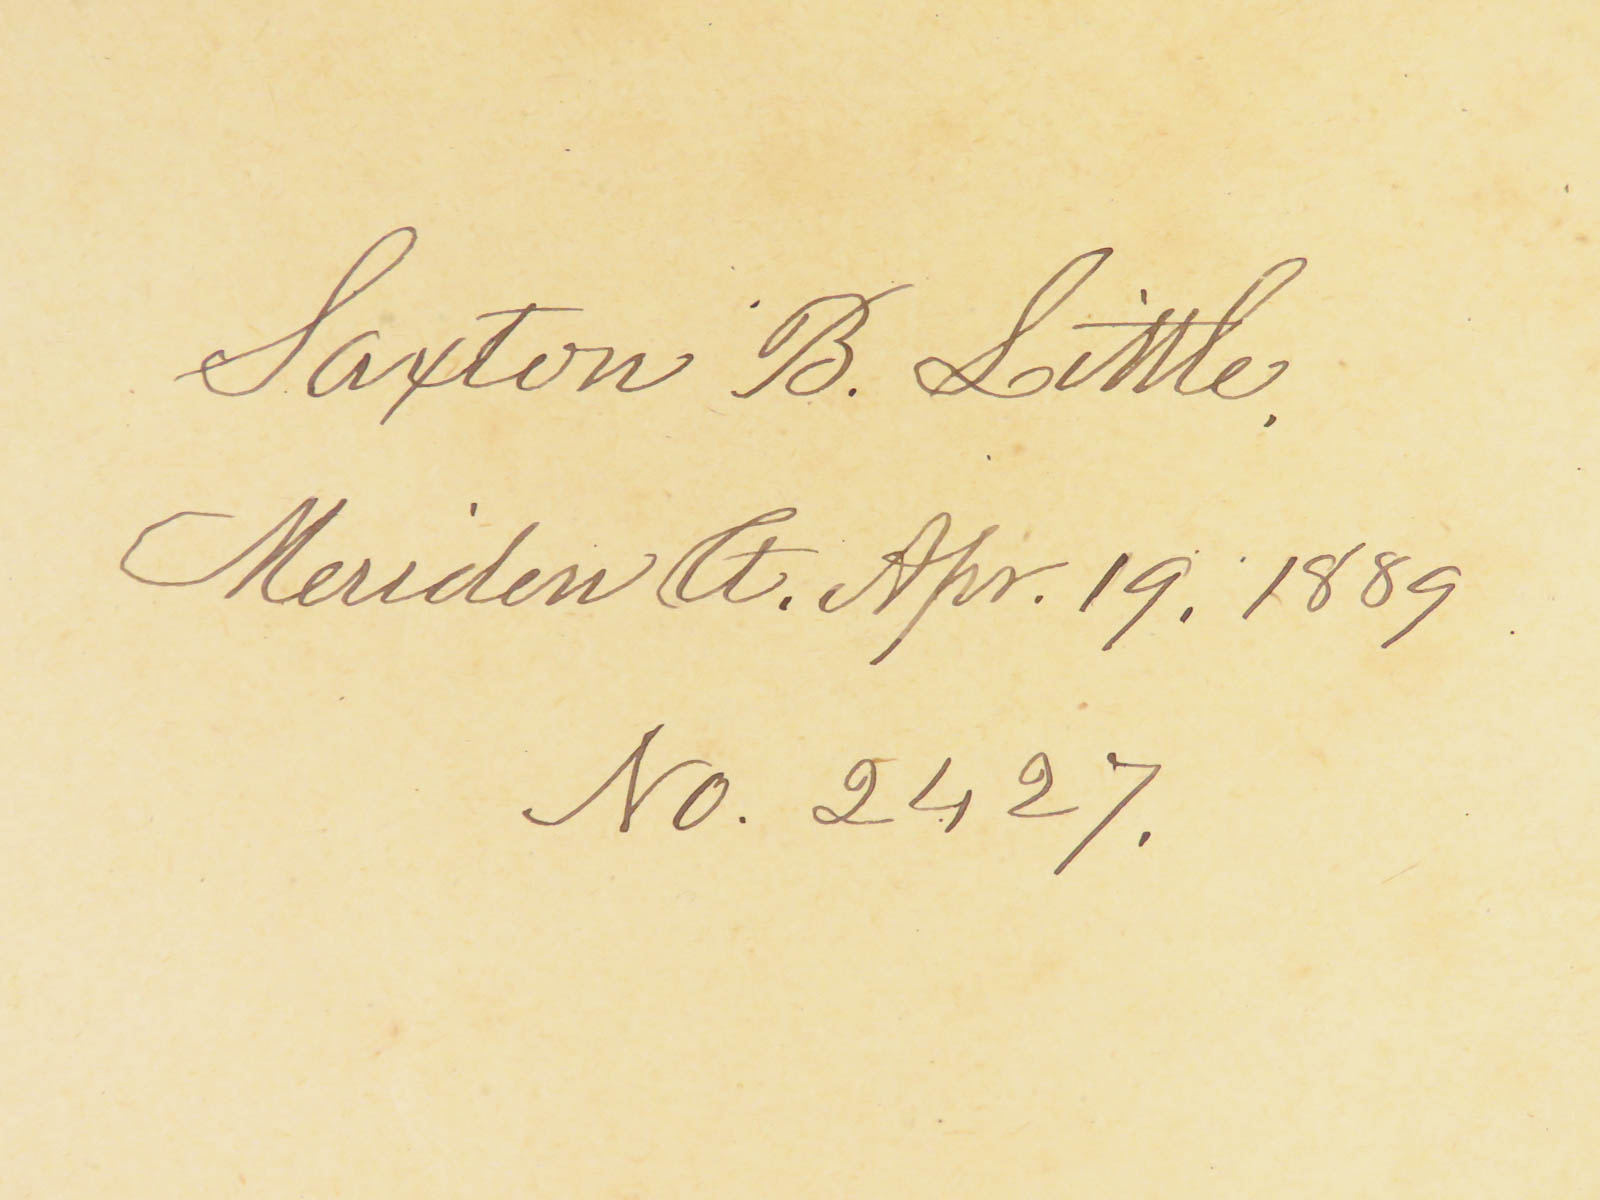 Saxton B. Little,
Meriden Ct. Apr. 19, 1889
No. 2427.